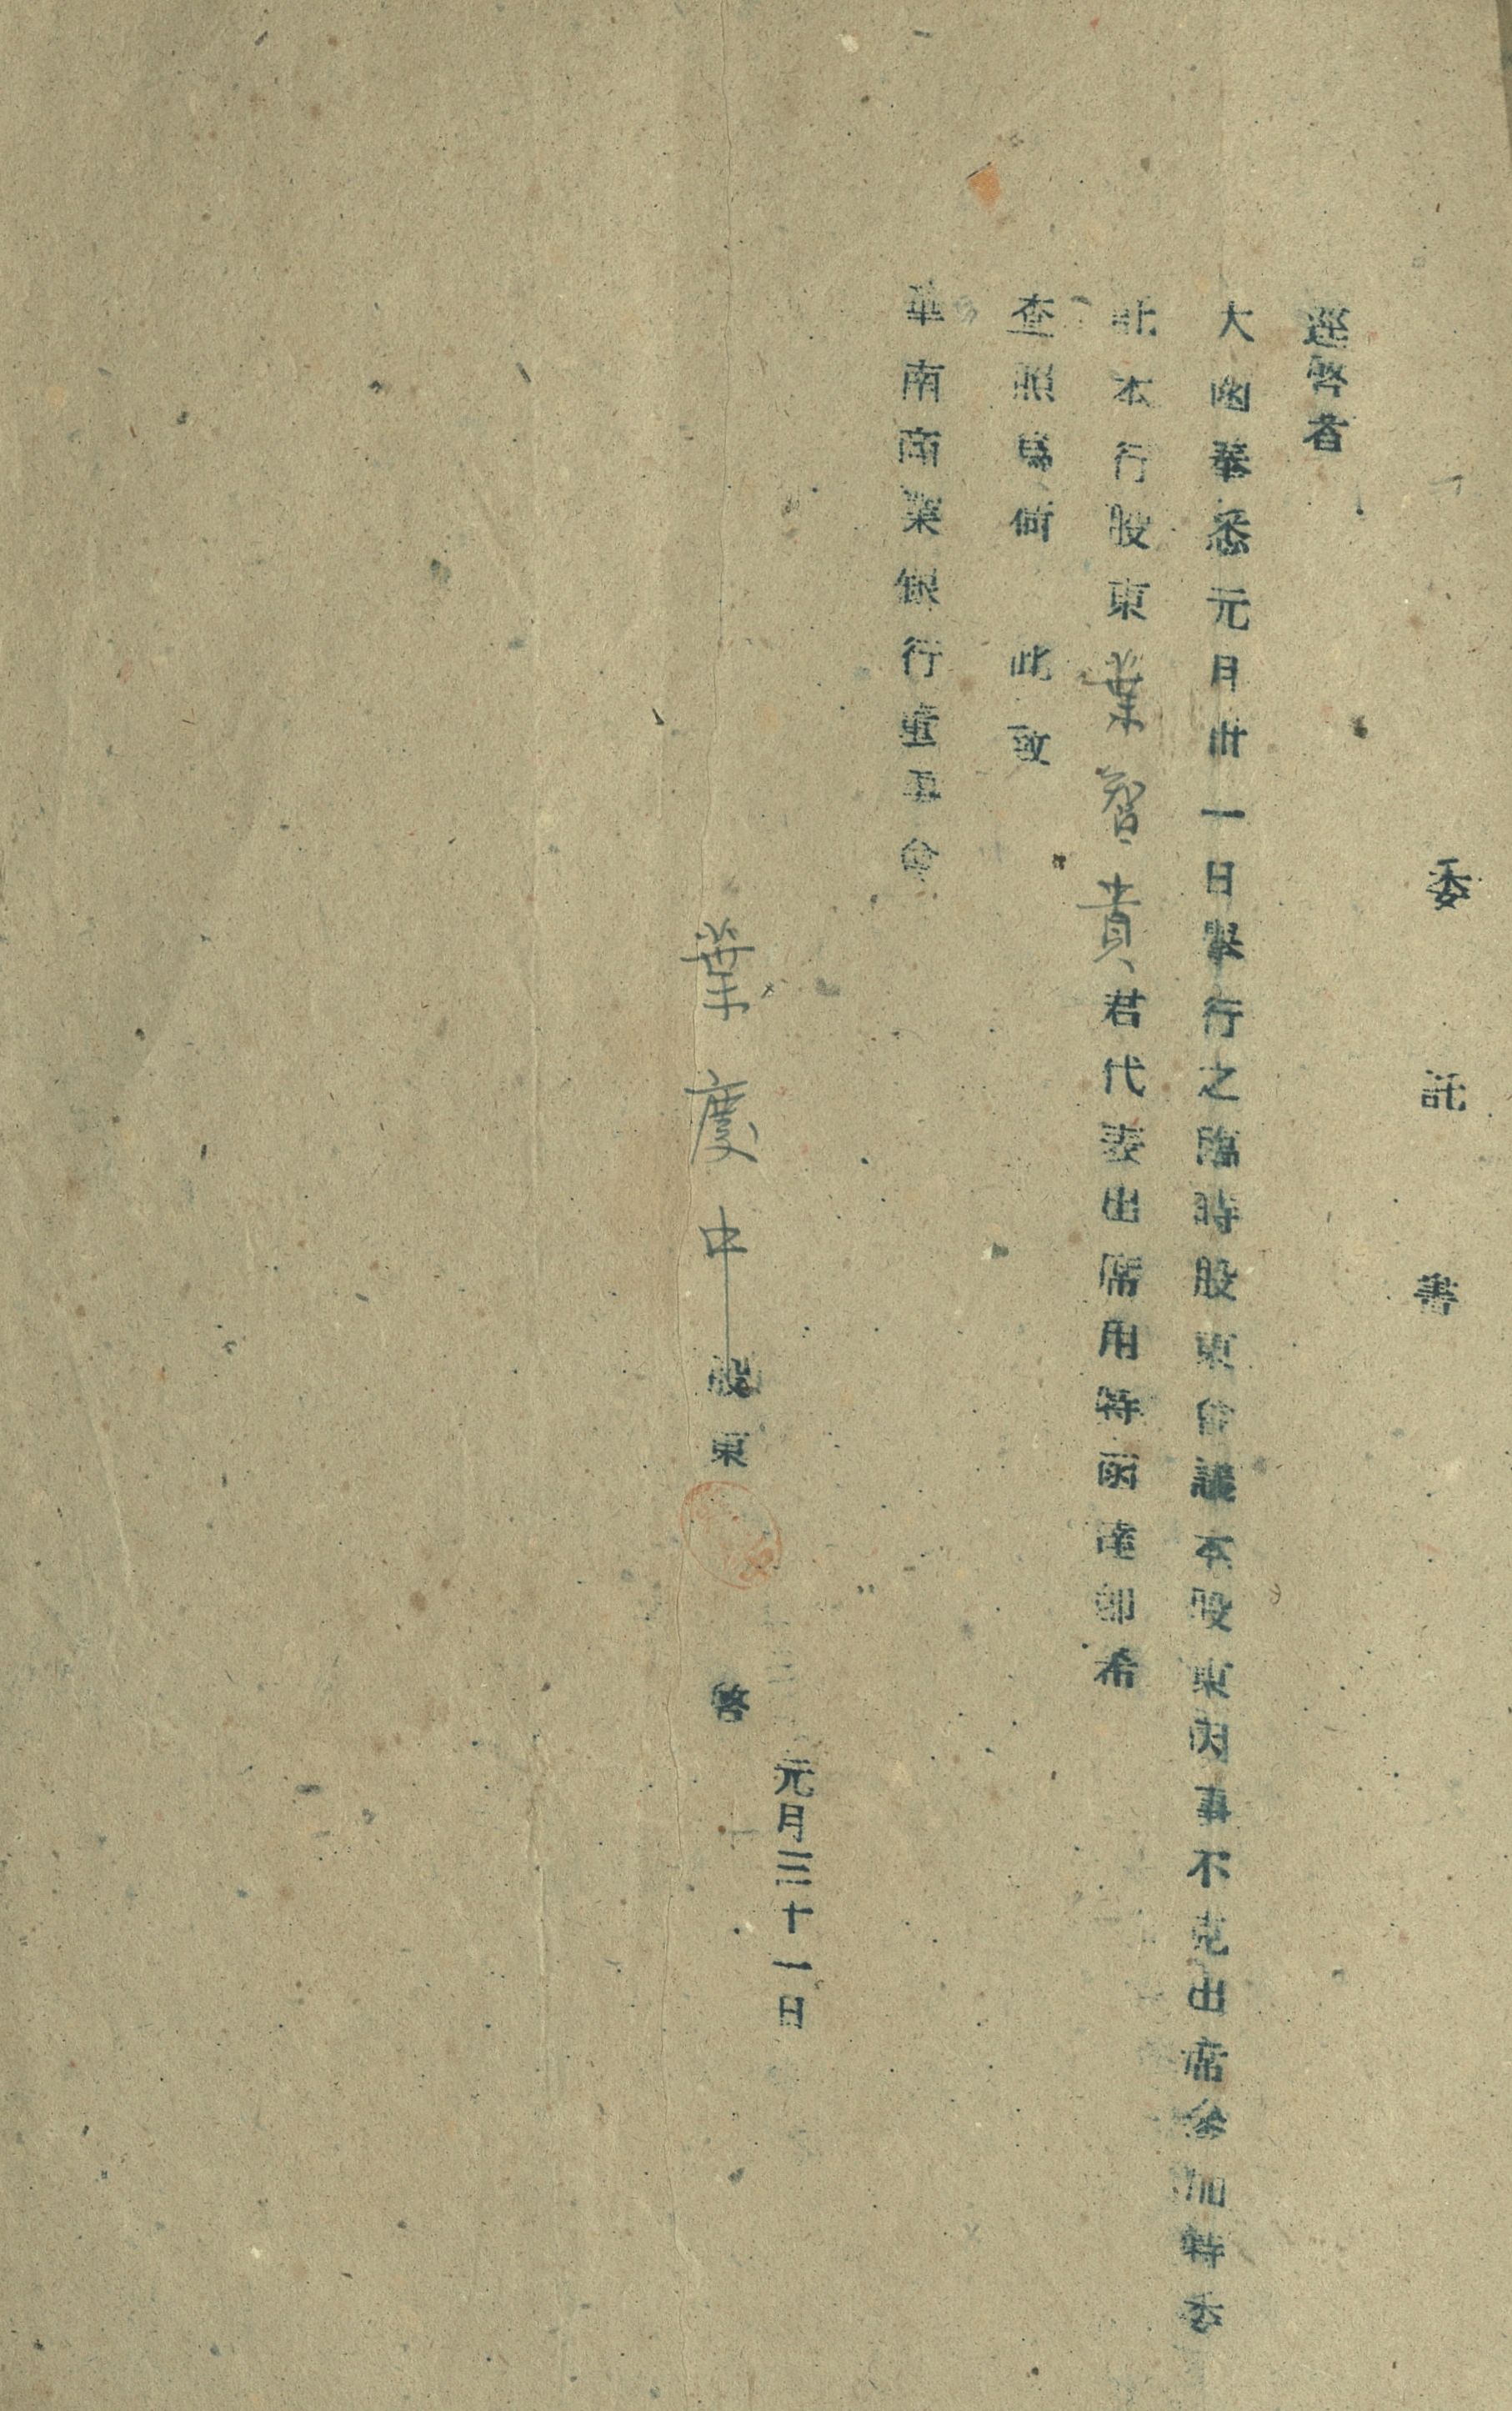 委託書
逕啓者
大函奉悉元月卅一日舉行之臨時股東會議本股東因事不克出席參加特委
託本行股東葉智貴君代表出席用特函達卽希
查照爲荷　此致
華南商業銀行董事會
元月三十一日
葉慶中股東　啓